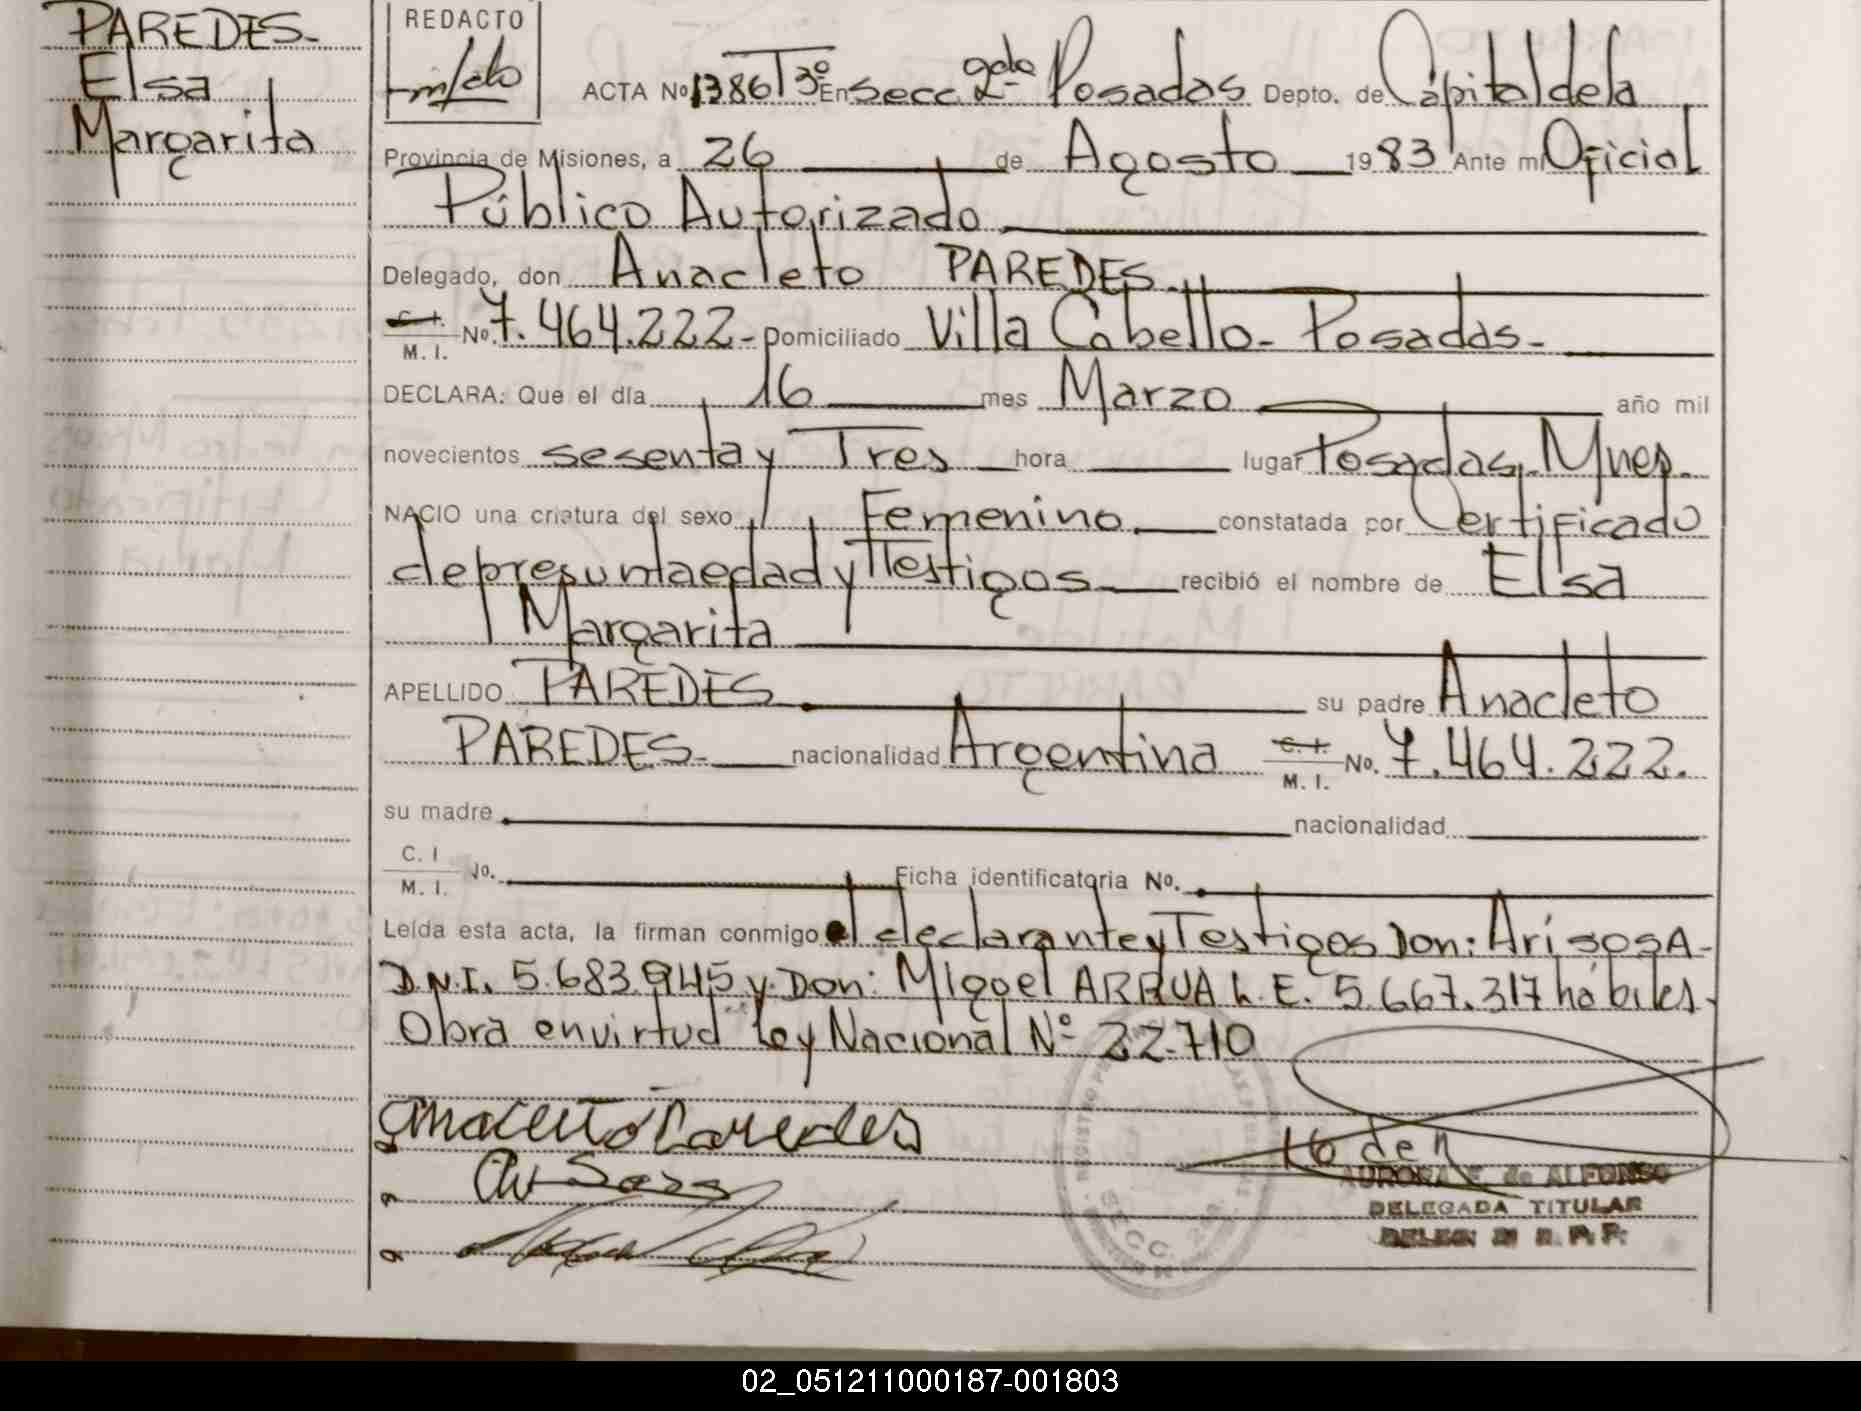 PAREDES-
Elsa
Margarita
REDACTO
ACTA Nº 1386 Tº3º En Secc 2da Posadas Depto. de Capital de la
Provincia de Misiones, a 26 de Agosto 1983 Ante mi Oficial
Público Autorizado
Delegado, don Anacleto PAREDES.
C. I. M. I. No. 7.464.222- Domiciliado Villa Cabello- Posadas-
DECLARA: Que el día 16 mes Marzo año mil
novecientos sesenta y Tres hora lugar Posadas, Mnes.
NACIO una criatura del sexo Femenino. constatada por Certificado
de presunta edad y Testigos recibió el nombre de Elsa
Margarita
APELLIDO PAREDES su padre Anacleto
PAREDES- nacionalidad Argentina C. I. M. I. No. 7.464.222.
su madre nacionalidad
C. I M. I. No. Ficha identificatoria No.
Leída esta acta, la firman conmigo el declarante y Testigos Don: Ari sosA-
D.N.I. 5.683.945 y Don: Miguel ARRUA L.E. 5.667.317 hábiles.
Obra en virtud Ley Nacional Nº 22.710
Anacleto Paredes
Ari Sosa
AURORA F. de ALFONSO
DELEGADA TITULAR
SECC. 2da.
02_051211000187-001803